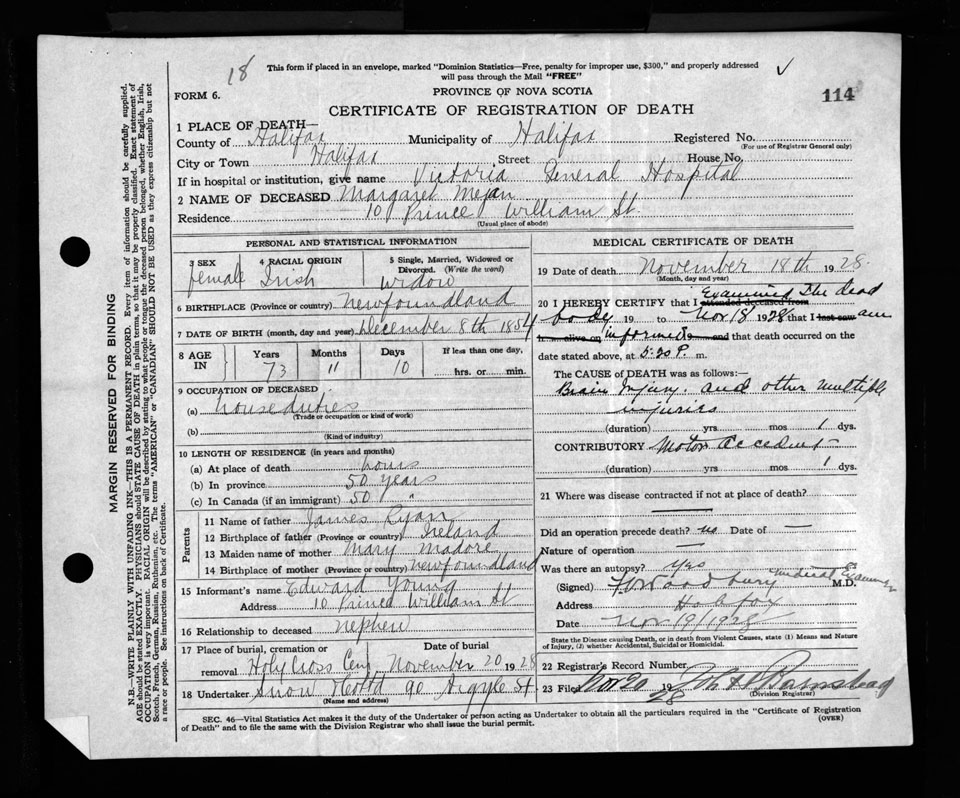 18
This form if placed in an envelope, marked "Dominion Statistics—Free, penalty for improper use, $300," and properly addressed
will pass through the Mail "FREE"
FORM 6.
PROVINCE OF NOVA SCOTIA
114
CERTIFICATE OF REGISTRATION OF DEATH
1 PLACE OF DEATH—
County of Halifax Municipality of Halifax Registered No.
(For use of Registrar General only)
City or Town Halifax Street House No.
If in hospital or institution, give name Victoria General Hospital
2 NAME OF DECEASED Margaret
Residence 10 Prince William St.
(Usual place of abode)
PERSONAL AND STATISTICAL INFORMATION
3 SEX 4 RACIAL ORIGIN 5 Single, Married, Widowed or
Divorced. (Write the word)
female Irish Widow
6 BIRTHPLACE (Province or country) Newfoundland
7 DATE OF BIRTH (month, day and year) December 8th 1854
8 AGE IN Years Months Days If less than one day,
73 11 10 hrs. or min.
9 OCCUPATION OF DECEASED
(a) house duties
(Trade or occupation or kind of work)
(b)
(Kind of industry)
10 LENGTH OF RESIDENCE (in years and months)
(a) At place of death hours
(b) In province 50 years
(c) In Canada (if an immigrant) 50 "
Parents
11 Name of father James Ryan
12 Birthplace of father (Province or country) Ireland
13 Maiden name of mother Mary Madore
14 Birthplace of mother (Province or country) Newfoundland
15 Informant's name Edward Young
Address 10 Prince William St
16 Relationship to deceased nephew
17 Place of burial, cremation or
removal Holy Cross Cem November 20 1928
18 Undertaker Snow & Co Ltd 90 Argyle St
(Name and address)
MEDICAL CERTIFICATE OF DEATH
19 Date of death November 18th 1928.
(Month, day and year)
20 I HEREBY CERTIFY that I attended deceased from Examined the dead
body 19 to Nov 18 1928 that I last saw am
h alive on informed and that death occurred on the
date stated above, at 5.20 P. m.
The CAUSE of DEATH was as follows:—
Brain Injury. and other multiple
injuries
(duration) yrs mos 1 dys.
CONTRIBUTORY Motor Accident
(duration) yrs mos 1 dys.
21 Where was disease contracted if not at place of death?
Did an operation precede death? no Date of —
Nature of operation —
Was there an autopsy? Yes
(Signed) Woodbury Medical Examiner M.D.
Address Halifax
Date Nov 19/1928
State the Disease causing Death, or in death from Violent Causes, state (1) Means and Nature
of Injury, (J) whether Accidental, Suicidal or Homicidal.
22 Registrar's Record Number
23 Filed Nov 20 1928
(Division Registrar)
SEC. 46—Vital Statistics Act makes it the duty of the Undertaker or person acting as Undertaker to obtain all the particulars required in the "Certificate of Registration
of Death" and to file the same with the Division Registrar who shall issue the burial permit.
(OVER)
MARGIN RESERVED FOR BINDING
N.B.—WRITE PLAINLY WITH UNFADING INK—THIS IS A PERMANENT RECORD. Every item of information should be carefully supplied.
AGE should be stated EXACTLY. PHYSICIANS should STATE CAUSE OF DEATH in plain terms, so that it may be properly classified. Exact statement of
OCCUPATION is very important. RACIAL ORIGIN will be described by stating to what people or tongue the deceased person belonged, whether English, Irish,
Scotch, French, German, Russian, Ruthenian, etc. The terms "AMERICAN" or "CANADIAN" SHOULD NOT BE USED as they express citizenship but not
a race or people. See instructions on back of Certificate.